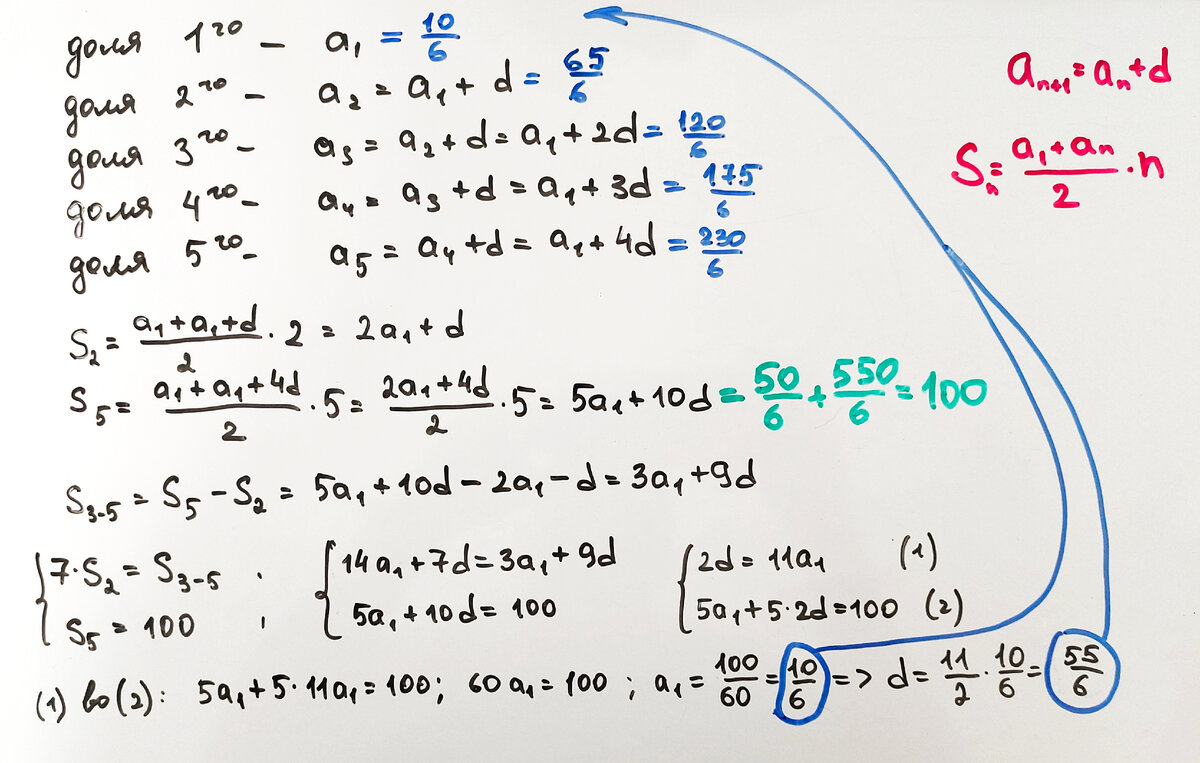 доля 1го – a₁ = 10/6
доля 2го – a₂ = a₁ + d = 65/6
доля 3го – a₃ = a₂ + d = a₁ + 2d = 120/6
доля 4го – a₄ = a₃ + d = a₁ + 3d = 175/6
доля 5го – a₅ = a₄ + d = a₁ + 4d = 230/6
aₙ₊₁ = aₙ + d
Sₙ = (a₁ + aₙ)/2 · n
S₂ = (a₁ + a₁ + d)/2 · 2 = 2a₁ + d
S₅ = (a₁ + a₁ + 4d)/2 · 5 = (2a₁ + 4d)/2 · 5 = 5a₁ + 10d = 50/6 + 550/6 = 100
S₃₋₅ = S₅ – S₂ = 5a₁ + 10d – 2a₁ – d = 3a₁ + 9d
{ 7·S₂ = S₃₋₅ ; { 14a₁ + 7d = 3a₁ + 9d { 2d = 11a₁ (1)
S₅ = 100 ; 5a₁ + 10d = 100 5a₁ + 5·2d = 100 (2)
(1) во (2): 5a₁ + 5·11a₁ = 100; 60a₁ = 100; a₁ = 100/60 = 10/6 => d = 11/2 · 10/6 = 55/6